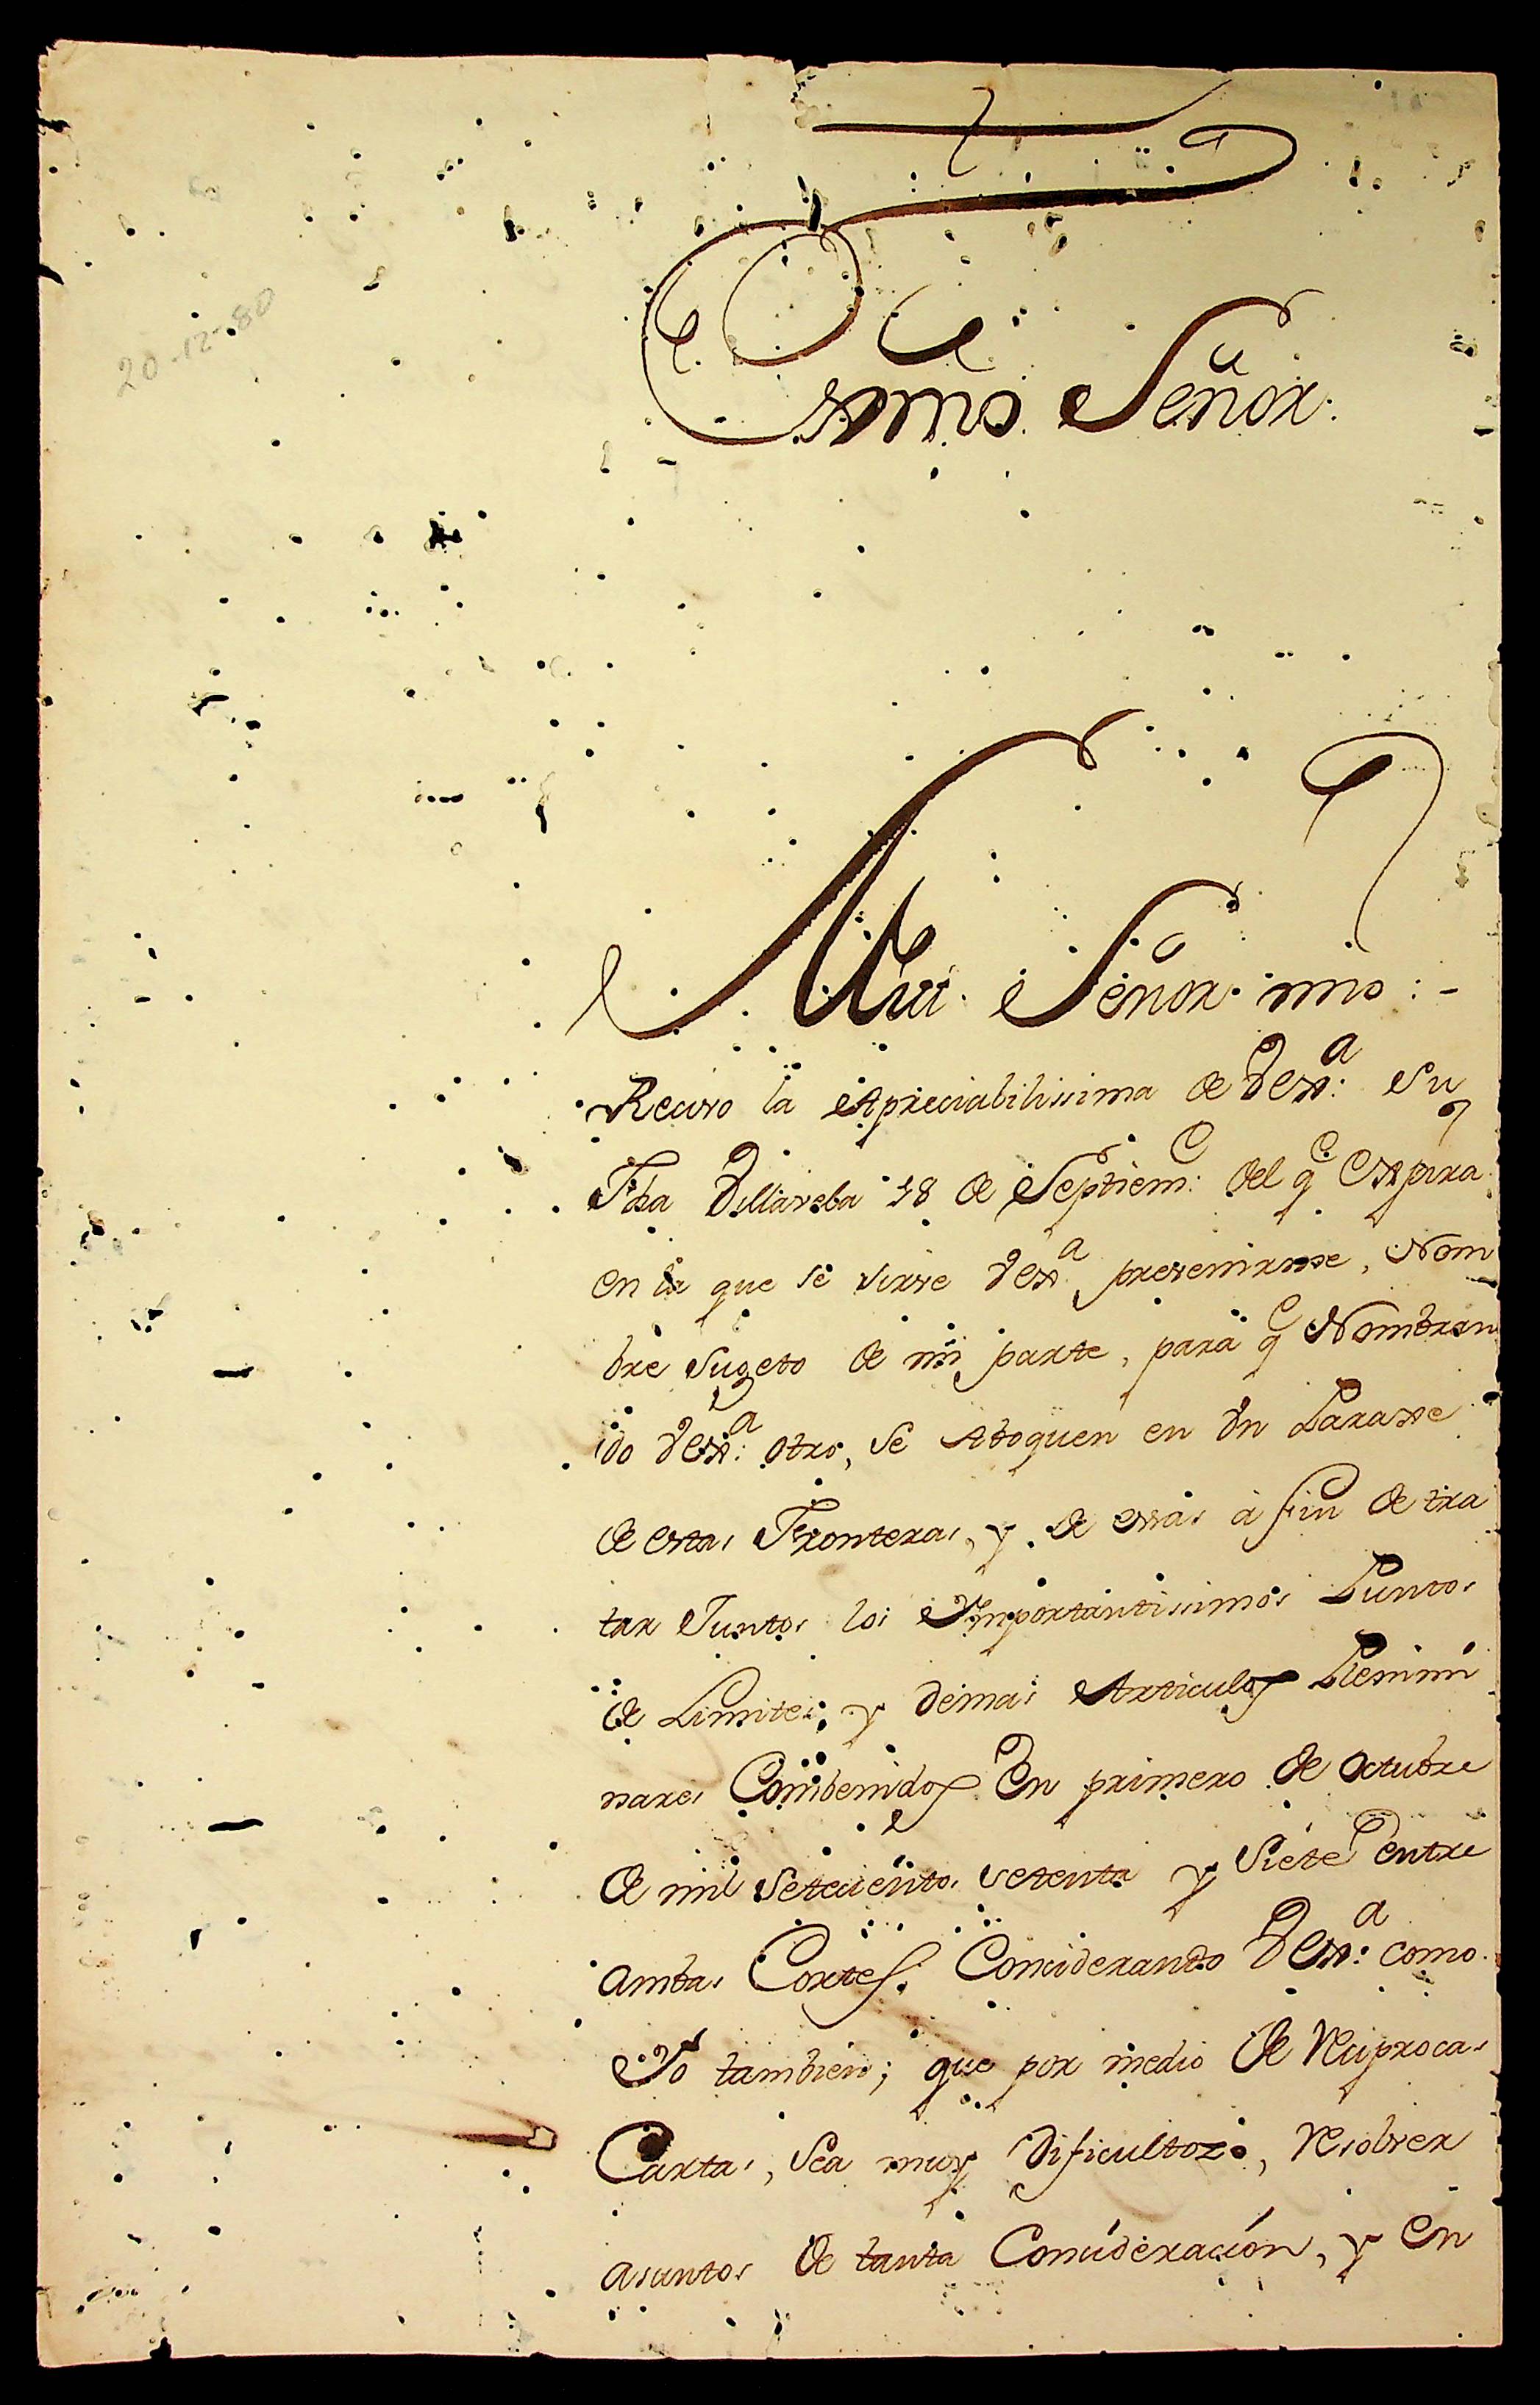 20-12-80
Exmo. Señor:
Mui Señor mio:-
Recivo la Apreciabilissima de VEx.ª: Su
Fha Villavela 18 de Septiem.e: del q.e Expira
en la que se sirve VEx.ª prevenirme, Nom
bre Sugeto de mi parte, para q.e Nombran
do VEx.ª: otro, se Aboquen en Un Paraxe
de estas Fronteras, y de essas à fin de tra
tar Juntos los Importantissimos Puntos
de Limites, y demas Articulos Prelimi
nares Combenidos En primero de Octubre
de mil Setecientos setenta y Siete entre
ambas Cortes. Considerando VEx.ª: como
Yó tambien; que por medio de Reciprocas
Cartas, Sea muy Dificultozo, Resolver
asuntos de tanta Consideración, y En